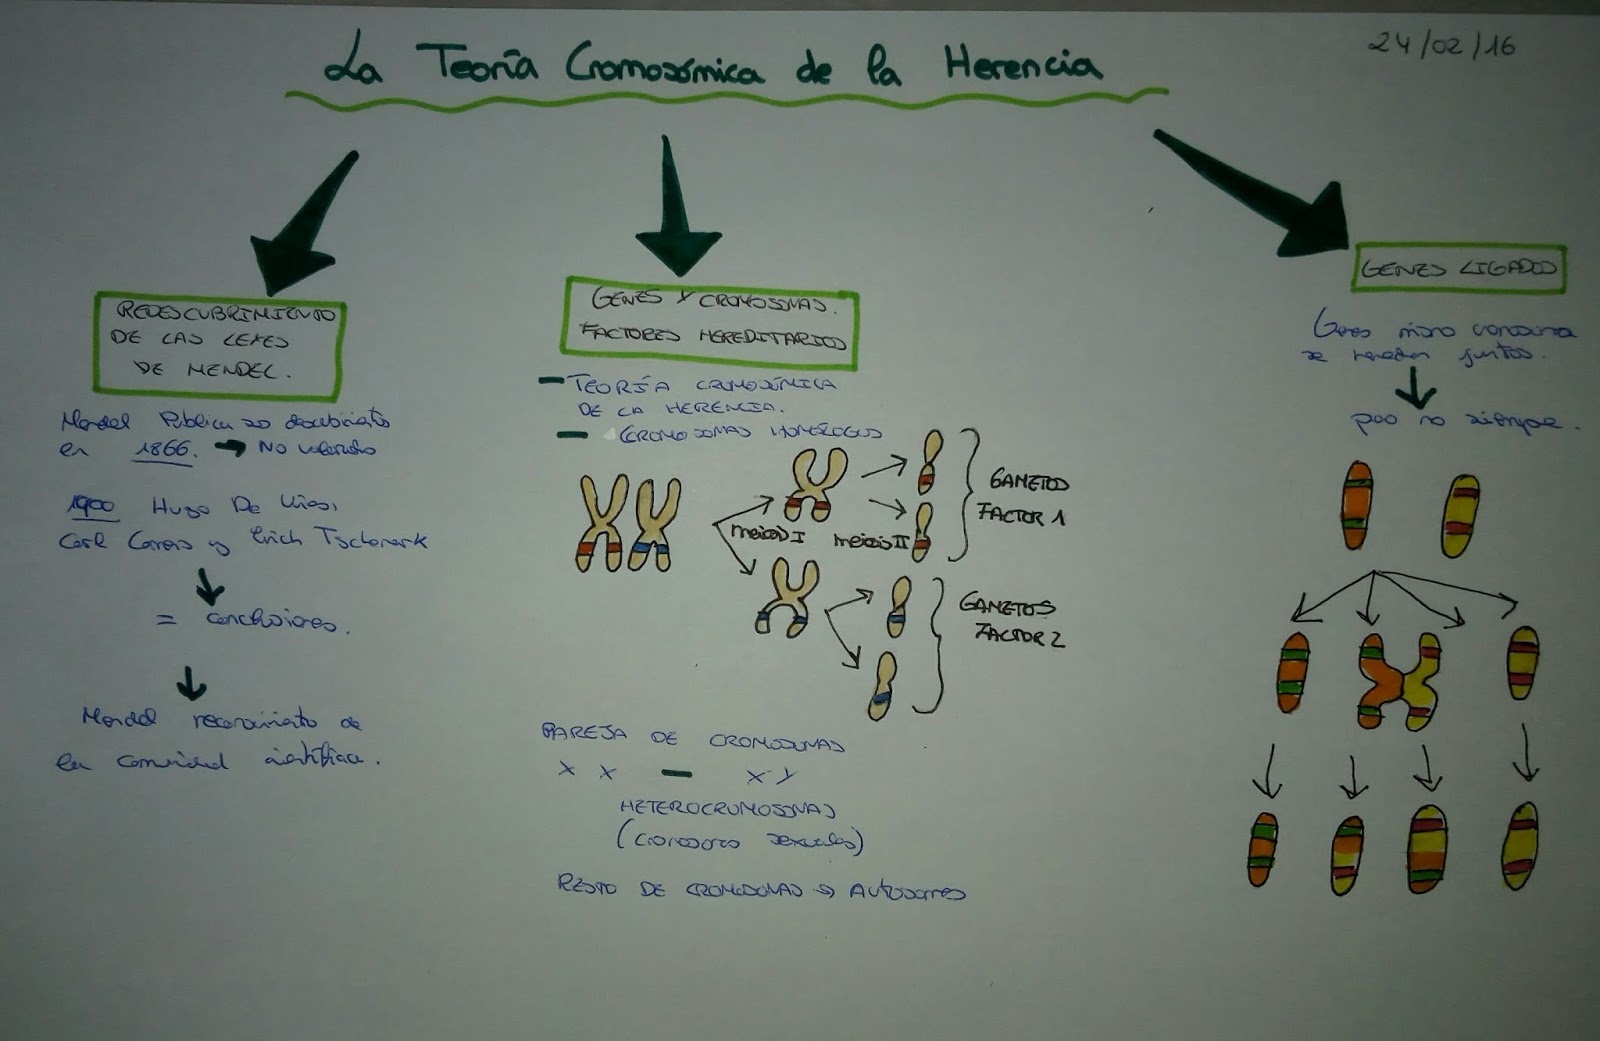 La Teoría Cromosómica de la Herencia
24/02/16
REDESCUBRIMIENTO
DE LAS LEYES
DE MENDEL.
Mendel Publica
en 1866. → No valorado
1900 Hugo De Vries,
Carl Correns y Erich Tschermark
= conclusiones.
Mendel reconocimiento de
la comunidad científica.
GENES Y CROMOSOMAS.
FACTORES HEREDITARIOS
- TEORÍA CROMOSÓMICA
DE LA HERENCIA.
- CROMOSOMAS HOMÓLOGOS
meiosis I
meiosis II
GAMETOS
FACTOR 1
GAMETOS
FACTOR 2
PAREJA DE CROMOSOMAS
X X - X Y
HETEROCROMOSOMAS
(cromosomas sexuales)
RESTO DE CROMOSOMAS → Autosomas
GENES LIGADOS
Genes mismo cromosoma
se heredan juntos.
pero no siempre.